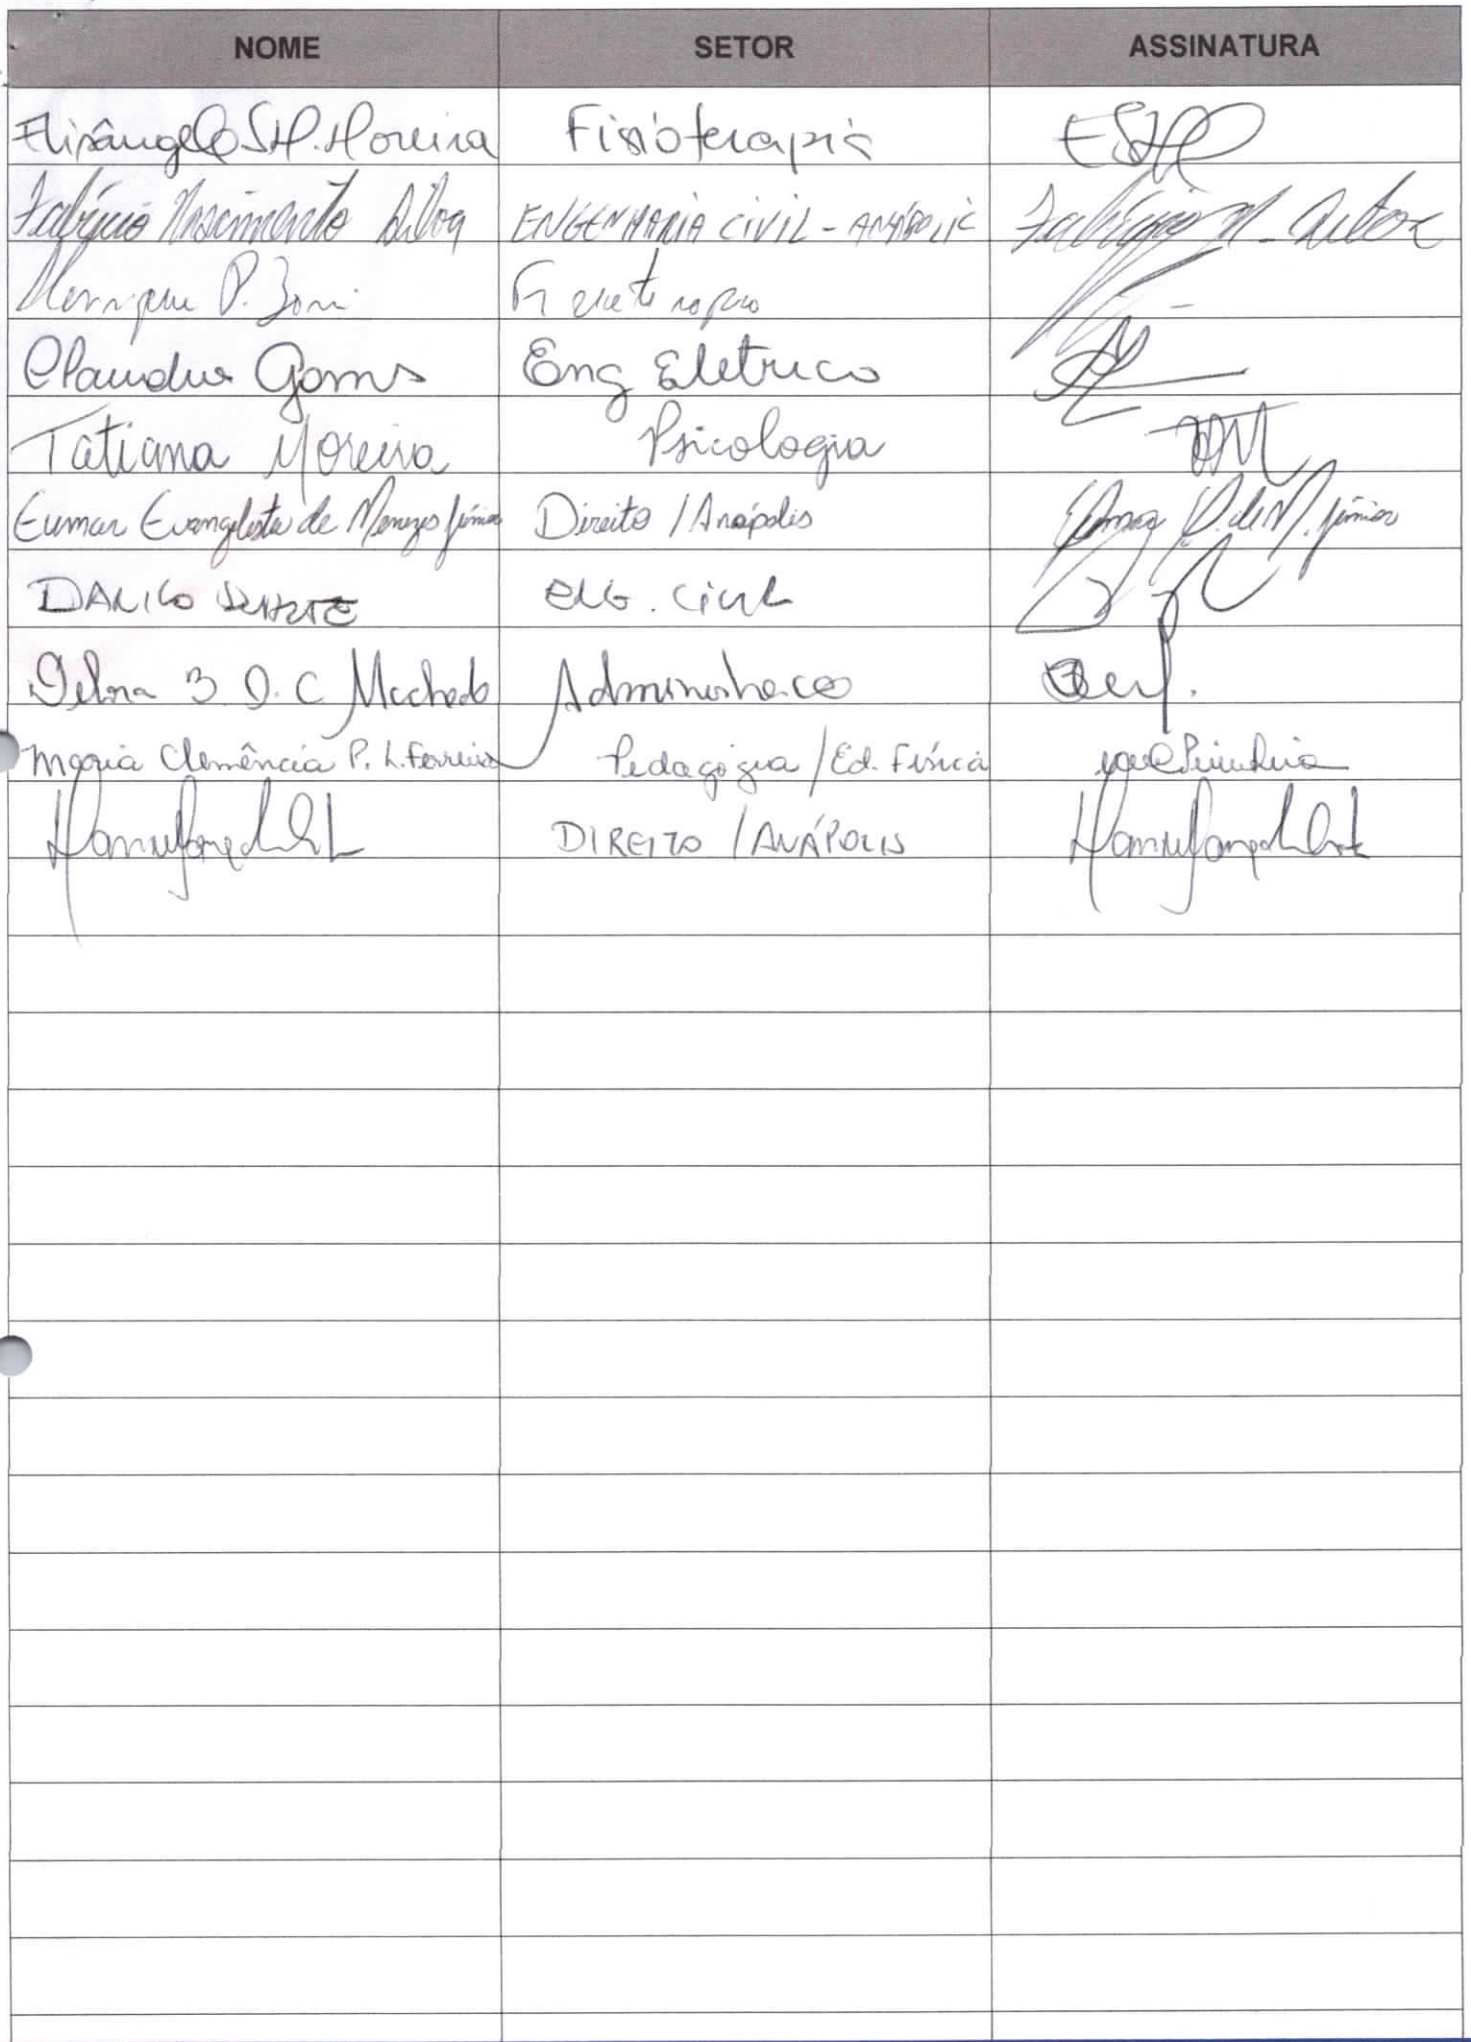 NOME SETOR ASSINATURA
Elisângela S.H. Moreira Fisioterapia
Fabrício Nascimento Silva ENGENHARIA CIVIL - ANÁPOLIS Fabrício N. Silva
Henrique P. Fisioterapia
Claudia Gomes Eng Eletrica
Tatiana Moreira Psicologia
Eumar Evangelista de Menezes Júnior Direito / Anápolis Eumar E. de M. Júnior
DANILO DUARTE ENG. CIVIL
D. C. Machado Administracao
Maria Clemência P. L. Ferreira Pedagogia / Ed. Física
DIREITO / ANÁPOLIS